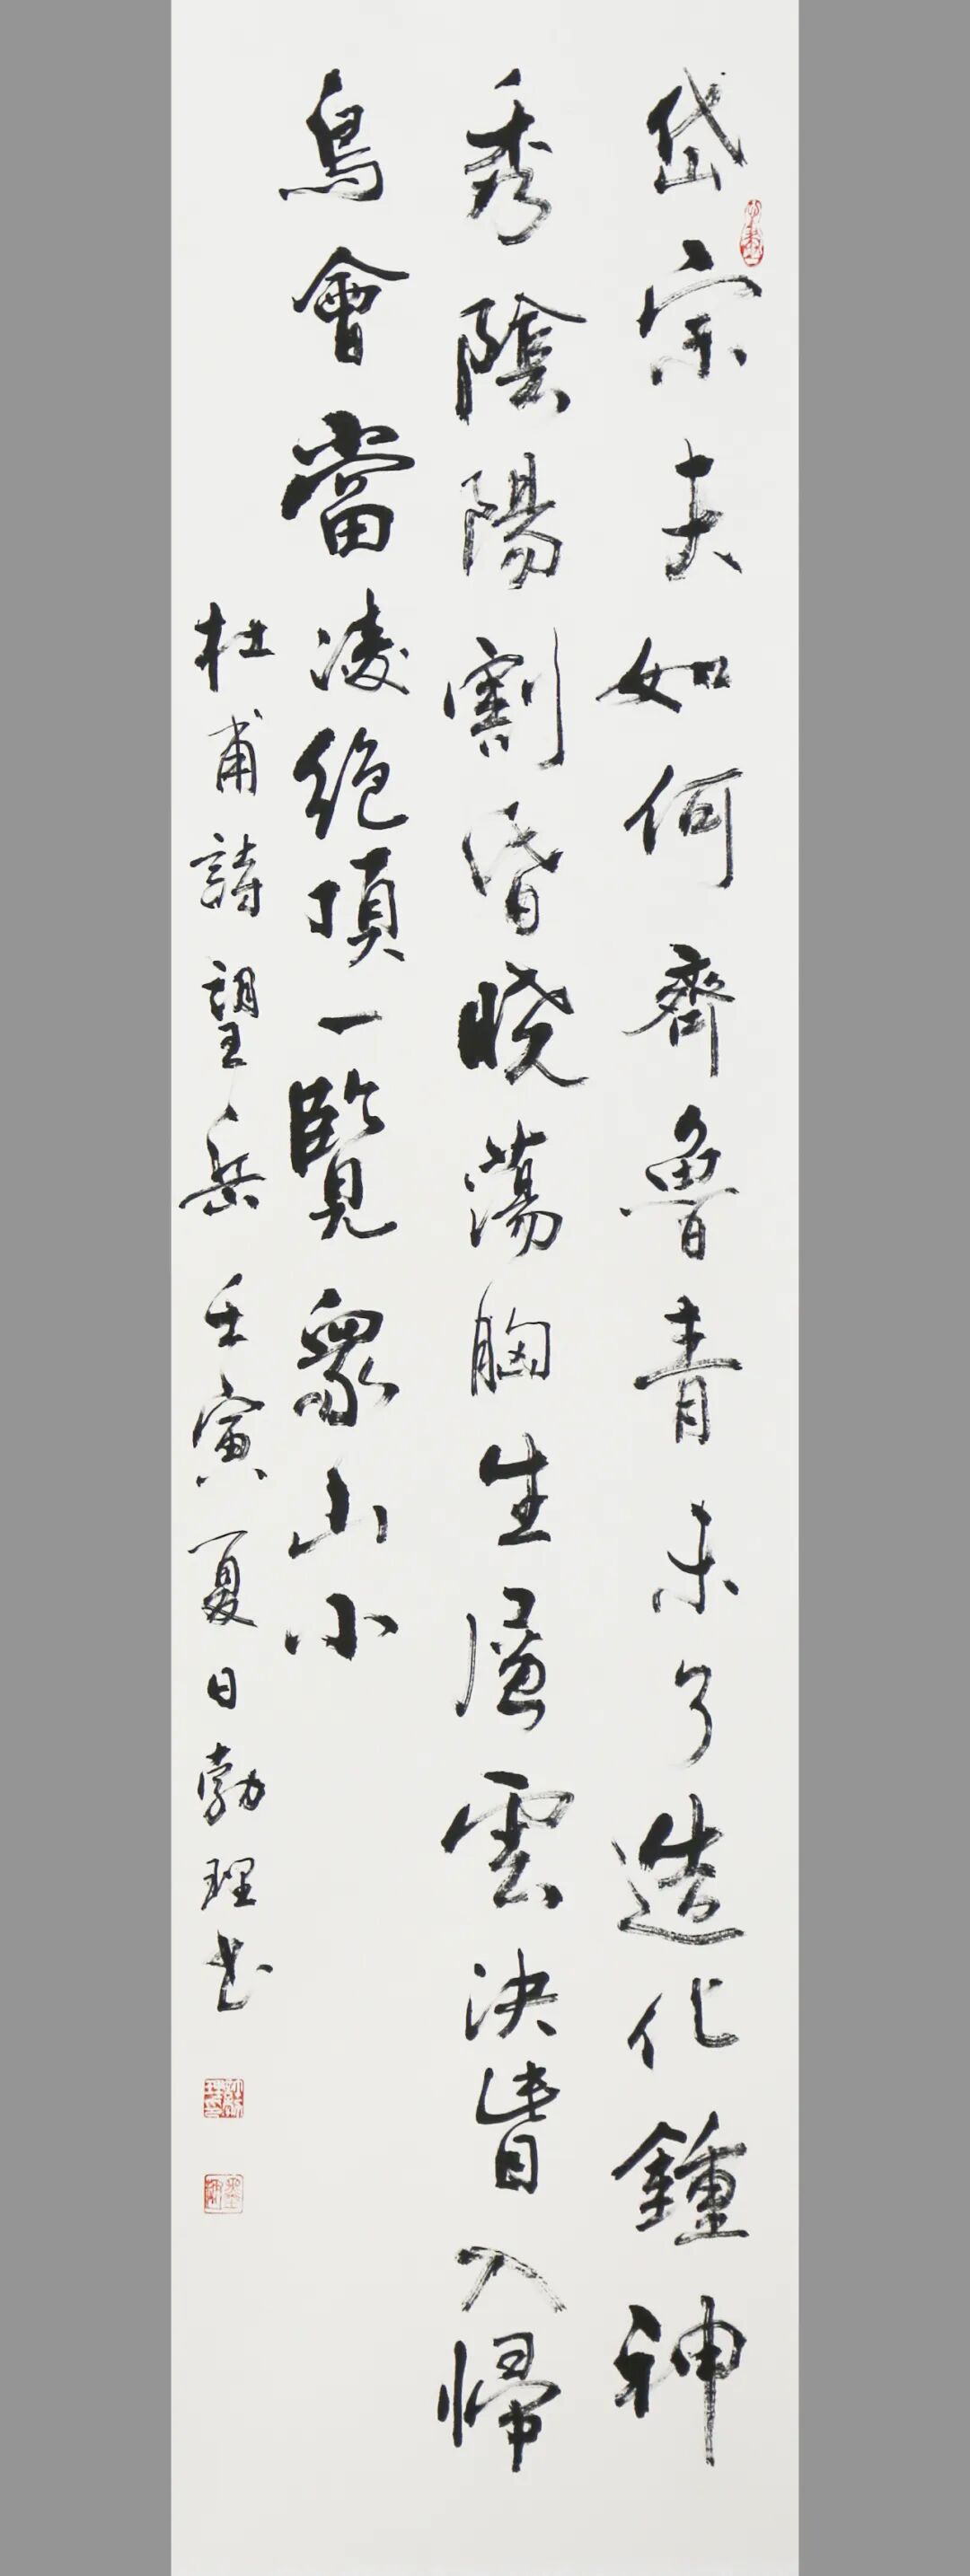 岱宗夫如何齊魯青未了造化鍾神
秀陰陽割昏曉蕩胸生層雲決眥入歸
鳥會當凌絕頂一覽衆山小
杜甫詩望岳壬寅夏日勃理书